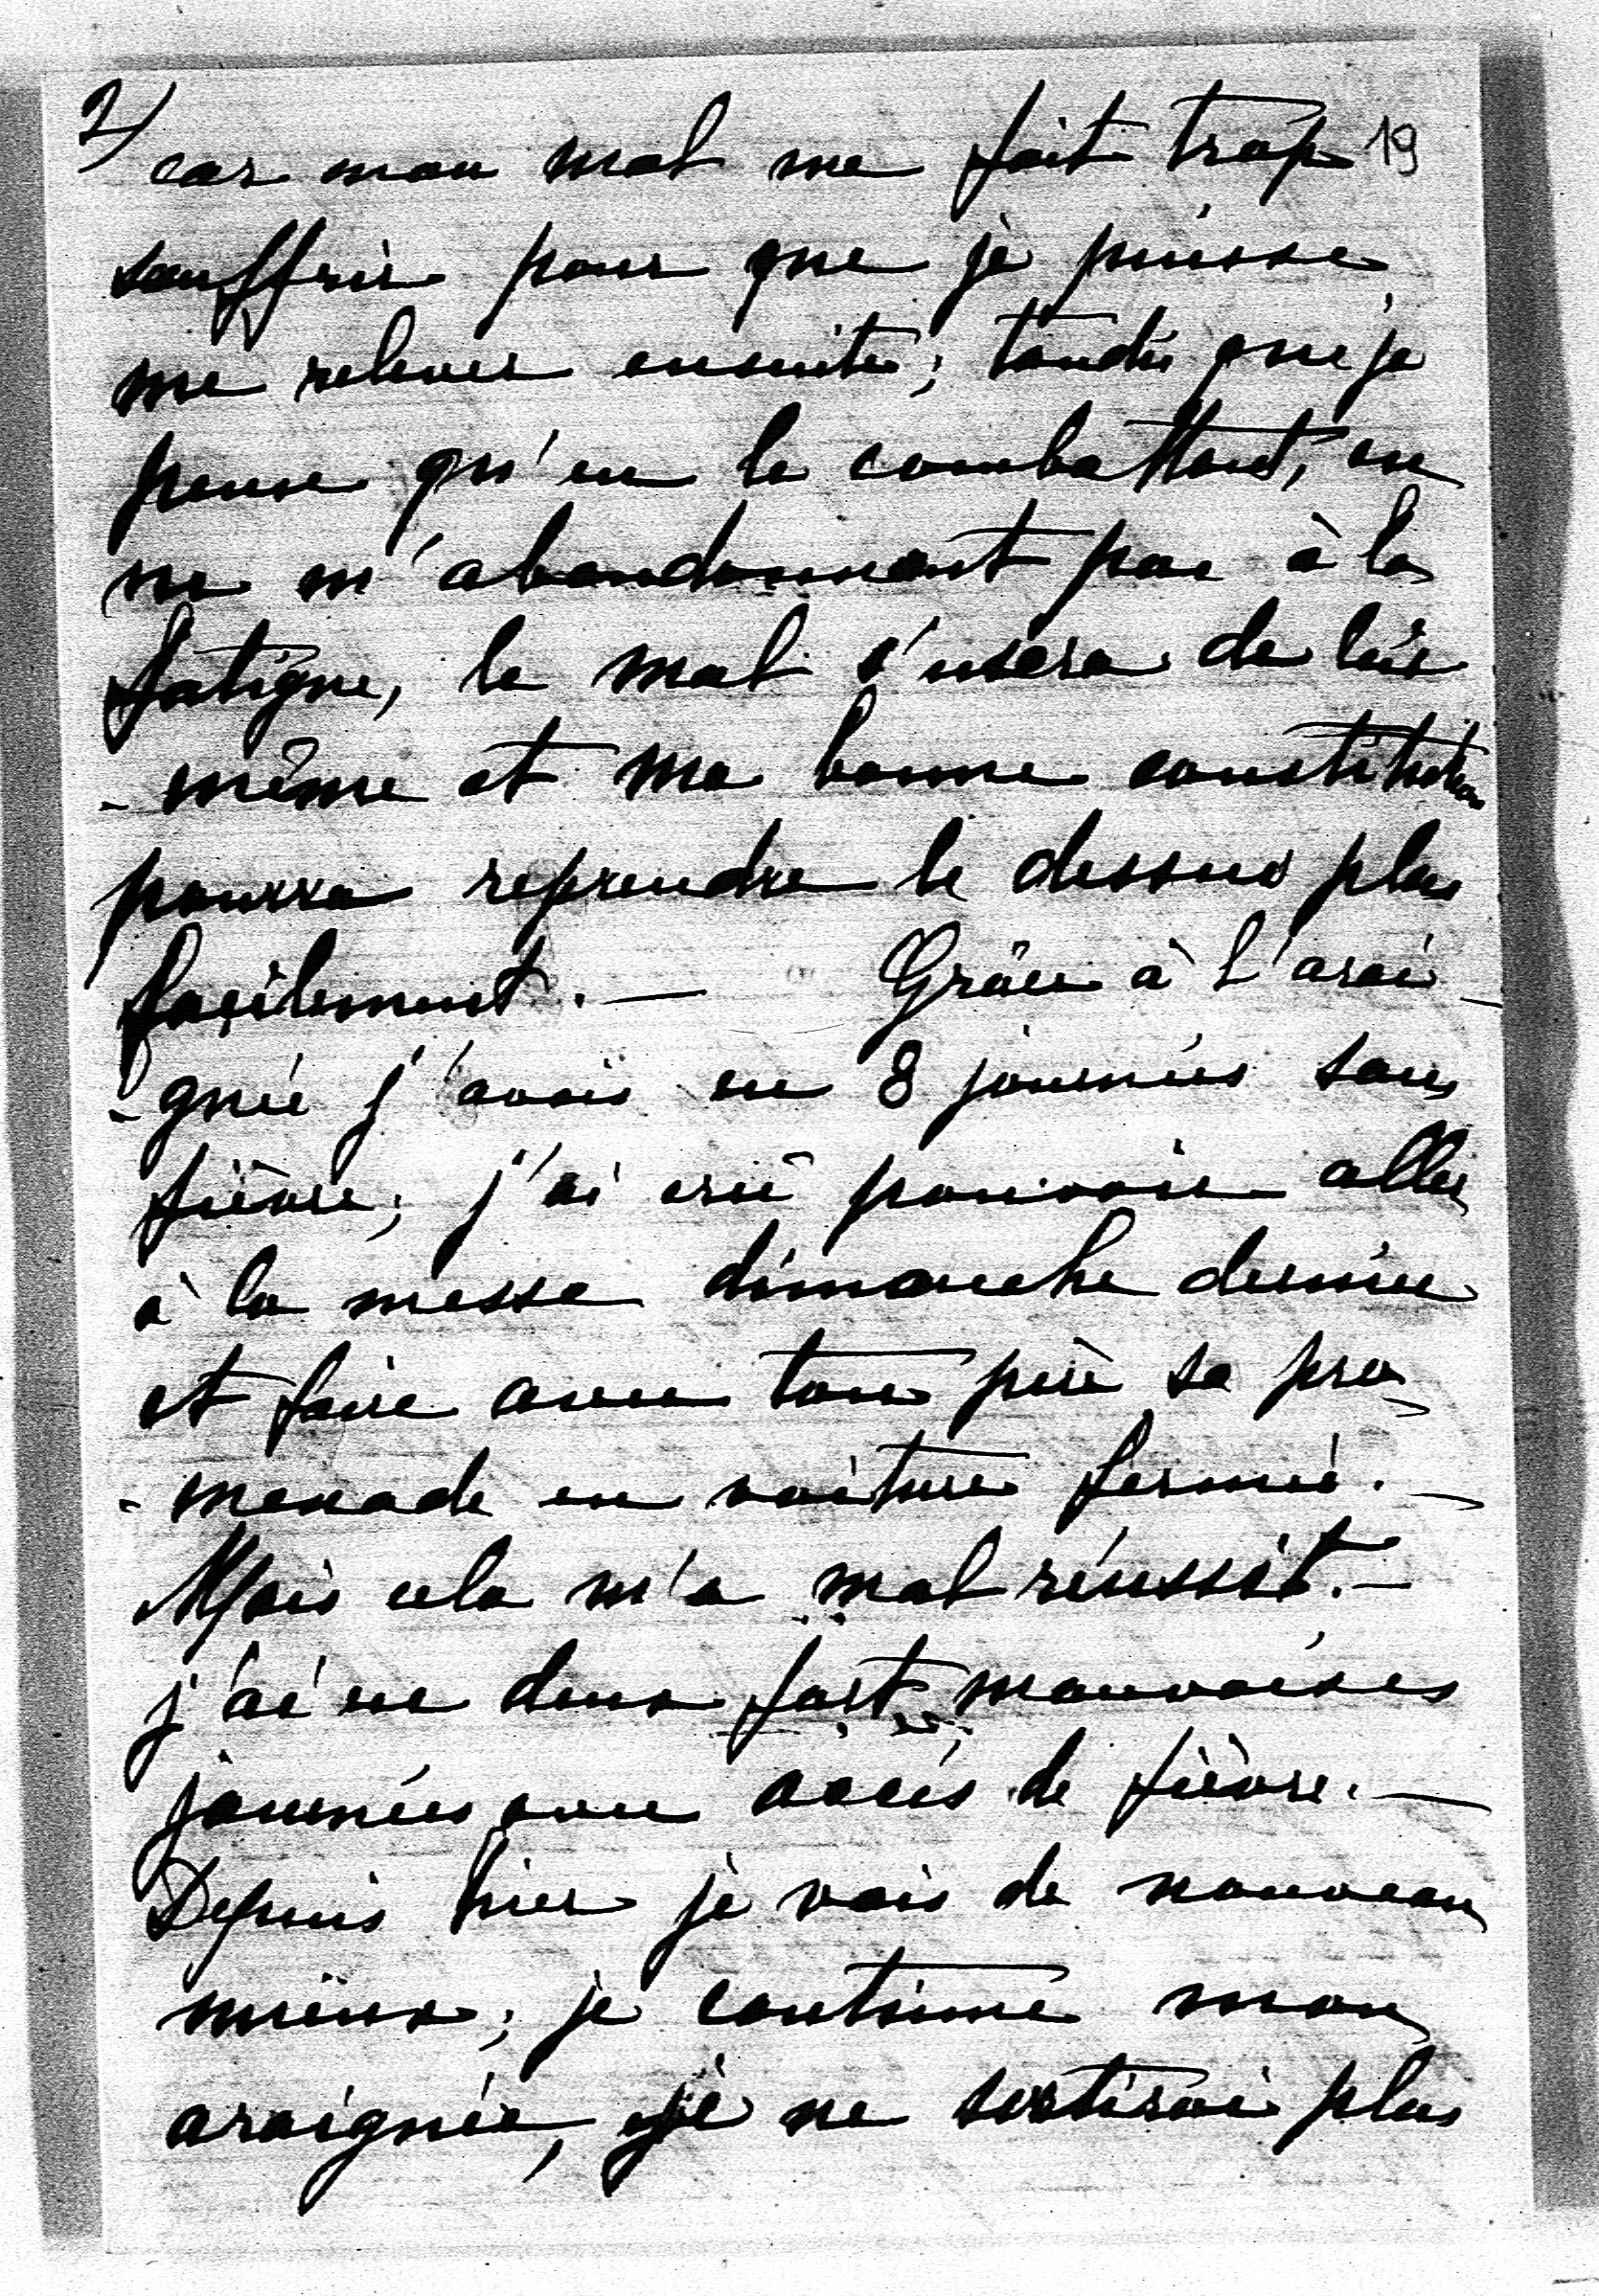 2/
car mon mal me fait trop 19
souffrir pour que je puisse
me relever ensuite; tandis que je
pense qu'en le combattant, en
ne m'abandonnant pas à la
fatigue, le mal s'usera de lui
- même et ma bonne constitution
pourra reprendre le dessus plus
facilement. — Grâce à l'arai-
-gnée j'avais eu 8 journées sans
fièvre; j'ai crû pouvoir aller
à la messe dimanche dernier
et faire avec ton père sa pro-
-menade en voiture fermée. —
Mais cela m'a mal réussit. —
j'ai eu deux fort mauvaises
journées avec accès de fièvre. —
Depuis hier je vais de nouveau
mieux; je continue mon
araignée, je ne sortirai plus